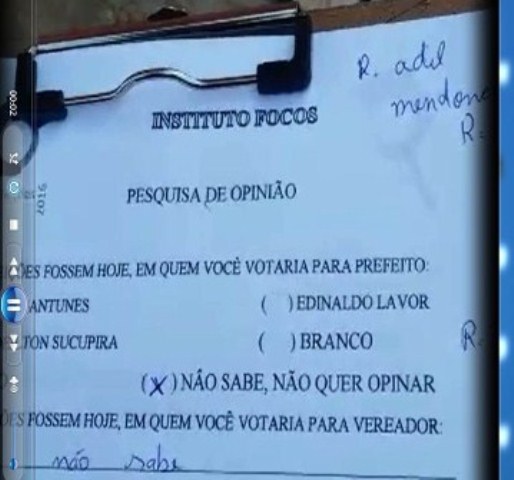 R. adil
mendon
INSTITUTO FOCOS
R.
2016
PESQUISA DE OPINIÃO
ÕES FOSSEM HOJE, EM QUEM VOCÊ VOTARIA PARA PREFEITO:
ANTUNES ( ) EDINALDO LAVOR
TON SUCUPIRA ( ) BRANCO
R.
(X) NÃO SABE, NÃO QUER OPINAR
ÕES FOSSEM HOJE, EM QUEM VOCÊ VOTARIA PARA VEREADOR:
não sabe
00:02